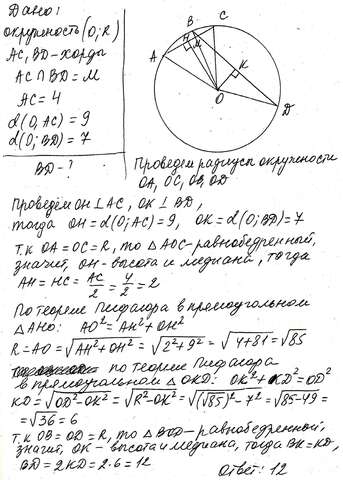 Дано:
окружность (O; R)
AC, BD – хорды
AC ∩ BD = M
AC = 4
d(O, AC) = 9
d(O; BD) = 7
BD - ?
A
B
C
H
M
K
O
D
Проведем радиусы окружности
OA, OC, OB, OD
Проведём OH ⊥ AC, OK ⊥ BD,
тогда OH = d(O; AC) = 9, OK = d(O; BD) = 7
т.к OA = OC = R, то △AOC - равнобедренный,
значит, OH - высота и медиана, тогда
AH = HC = AC/2 = 4/2 = 2
По теореме Пифагора в прямоугольном
△AHO: AO² = AH² + OH²
R = AO = √(AH² + OH²) = √(2² + 9²) = √(4+81) = √85
по теореме Пифагора
в прямоугольном △OKD: OK² + KD² = OD²
KD = √(OD² - OK²) = √(R² - OK²) = √((√85)² - 7²) = √(85-49) =
= √36 = 6
т.к OB = OD = R, то △BOD - равнобедренный,
значит, OK - высота и медиана, тогда BK = KD,
BD = 2KD = 2·6 = 12
Ответ: 12